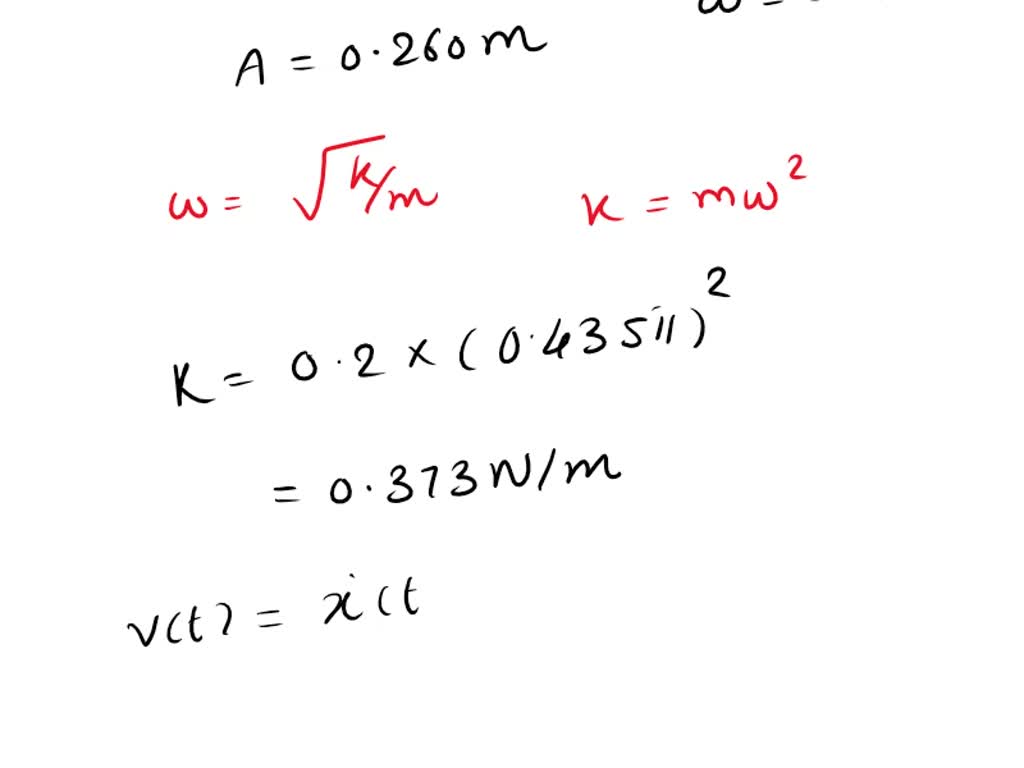 A = 0.260 m
ω = √k/m K = mω²
K = 0.2 × (0.435π)²
= 0.373 N/m
v(t) = ẋ(t